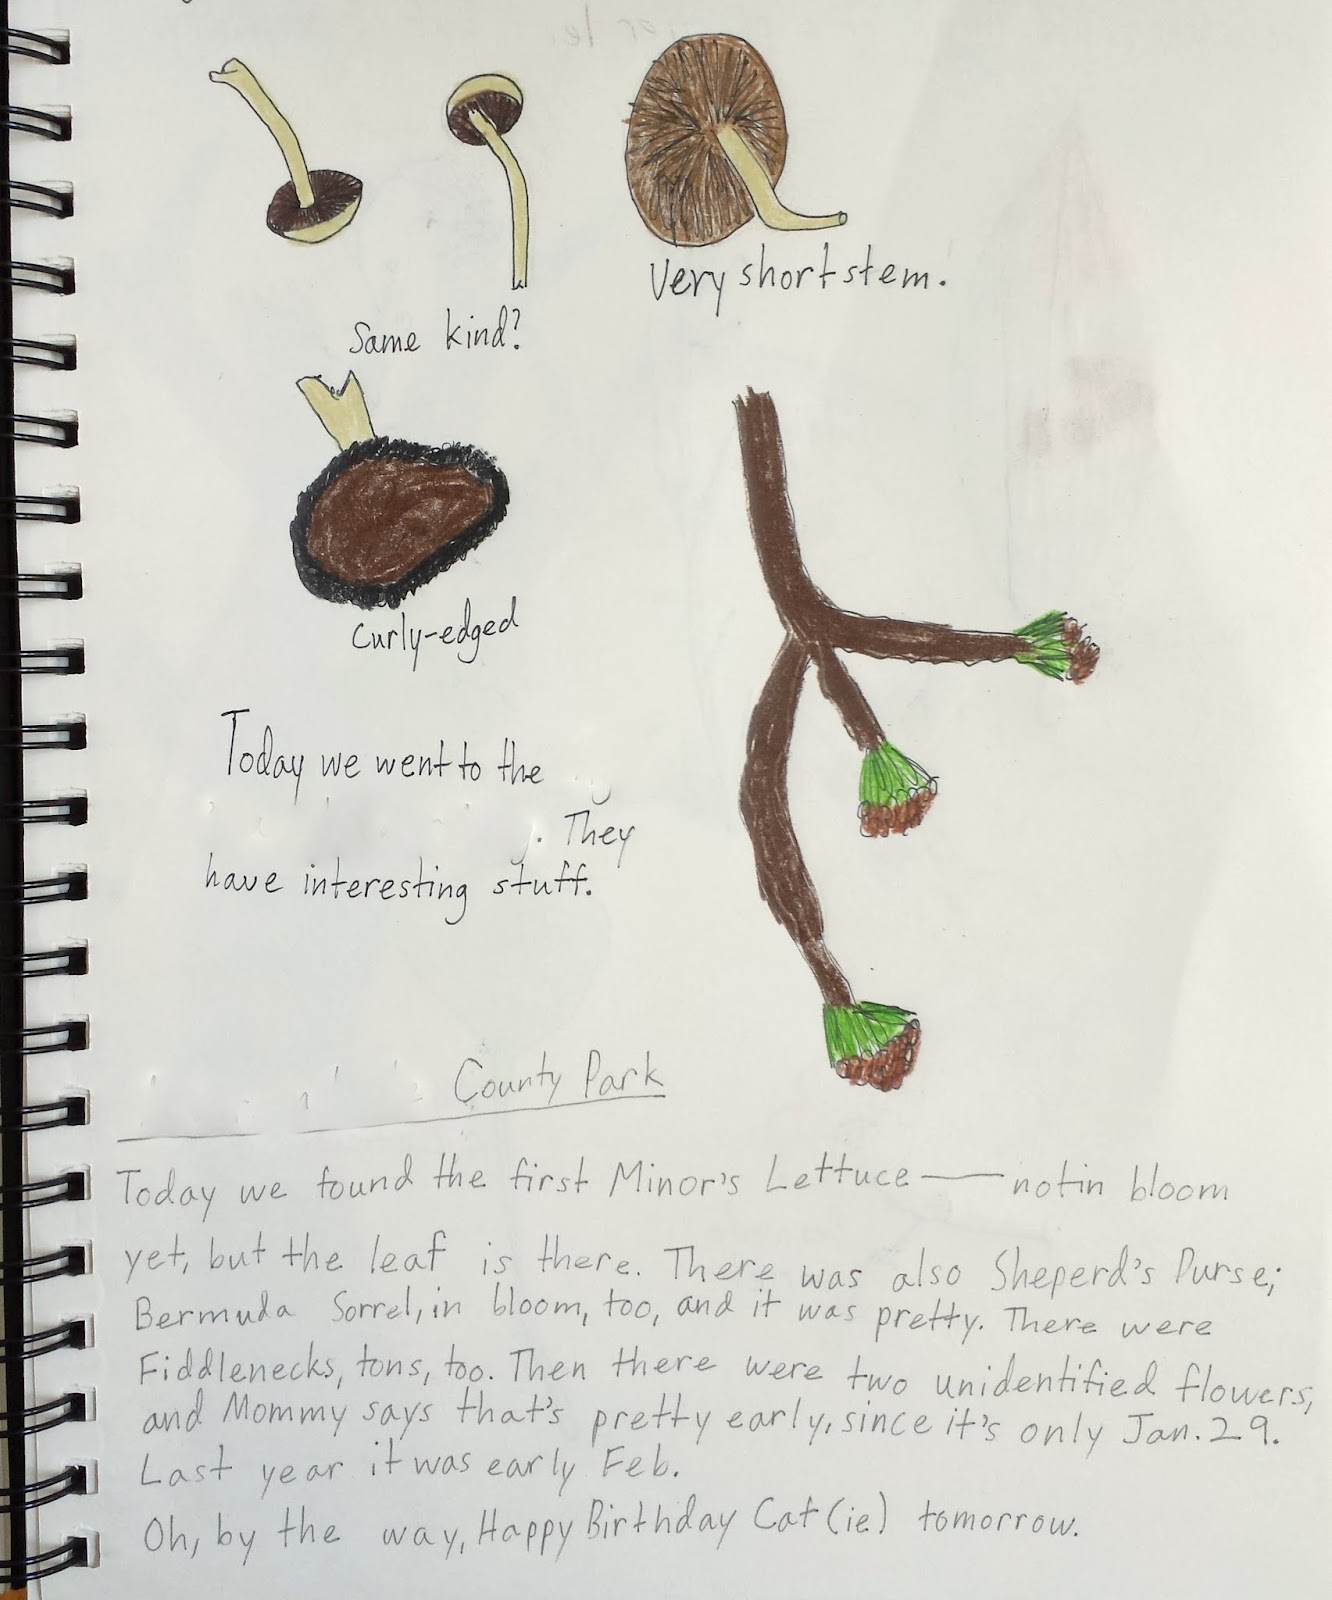 Very short stem.
Same kind?
Curly-edged
Today we went to the
. They
have interesting stuff.
County Park
Today we found the first Minor's Lettuce — not in bloom
yet, but the leaf is there. There was also Sheperd's Purse;
Bermuda Sorrel, in bloom, too, and it was pretty. There were
Fiddlenecks, tons, too. Then there were two unidentified flowers,
and Mommy says that's pretty early, since it's only Jan. 29.
Last year it was early Feb.
Oh, by the way, Happy Birthday Cat(ie) tomorrow.